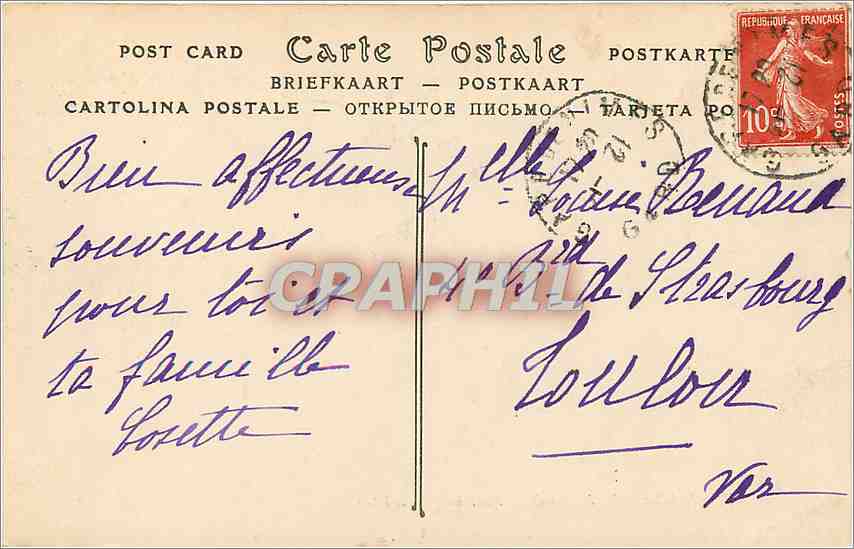 POST CARD Carte Postale POSTKARTE
BRIEFKAART — POSTKAART
CARTOLINA POSTALE - ОТКРЫТОЕ ПИСЬМО - TARJETA PO
REPUBLIQUE FRANÇAISE
10c
POSTES
NIMES
GARD
12
Bien affectueux
souvenirs
pour toi et
ta famille
Cosette
Mlle Louise Renaud
Bd de Strasbourg
Toulon
Var
CPARAMA